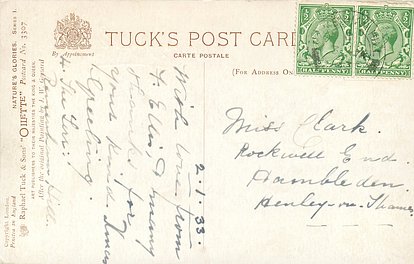 TUCK'S POST CARD
CARTE POSTALE
(FOR ADDRESS ON
By Appointment
HALFPENNY
HALFPENNY
Miss Clark.
Rockwell End.
Hambleden
Henley-on-Thames
2.1.33.
With love from
F. Ellis, & many
thanks for
your kind Xmas
Greeting.
NATURE'S GLORIES. SERIES I.
"OILETTE" Postcard No. 3307
ART PUBLISHERS TO THEIR MAJESTIES THE KING & QUEEN.
Raphael Tuck & Sons'
After the original Painting by
Copyright London.
Printed in England